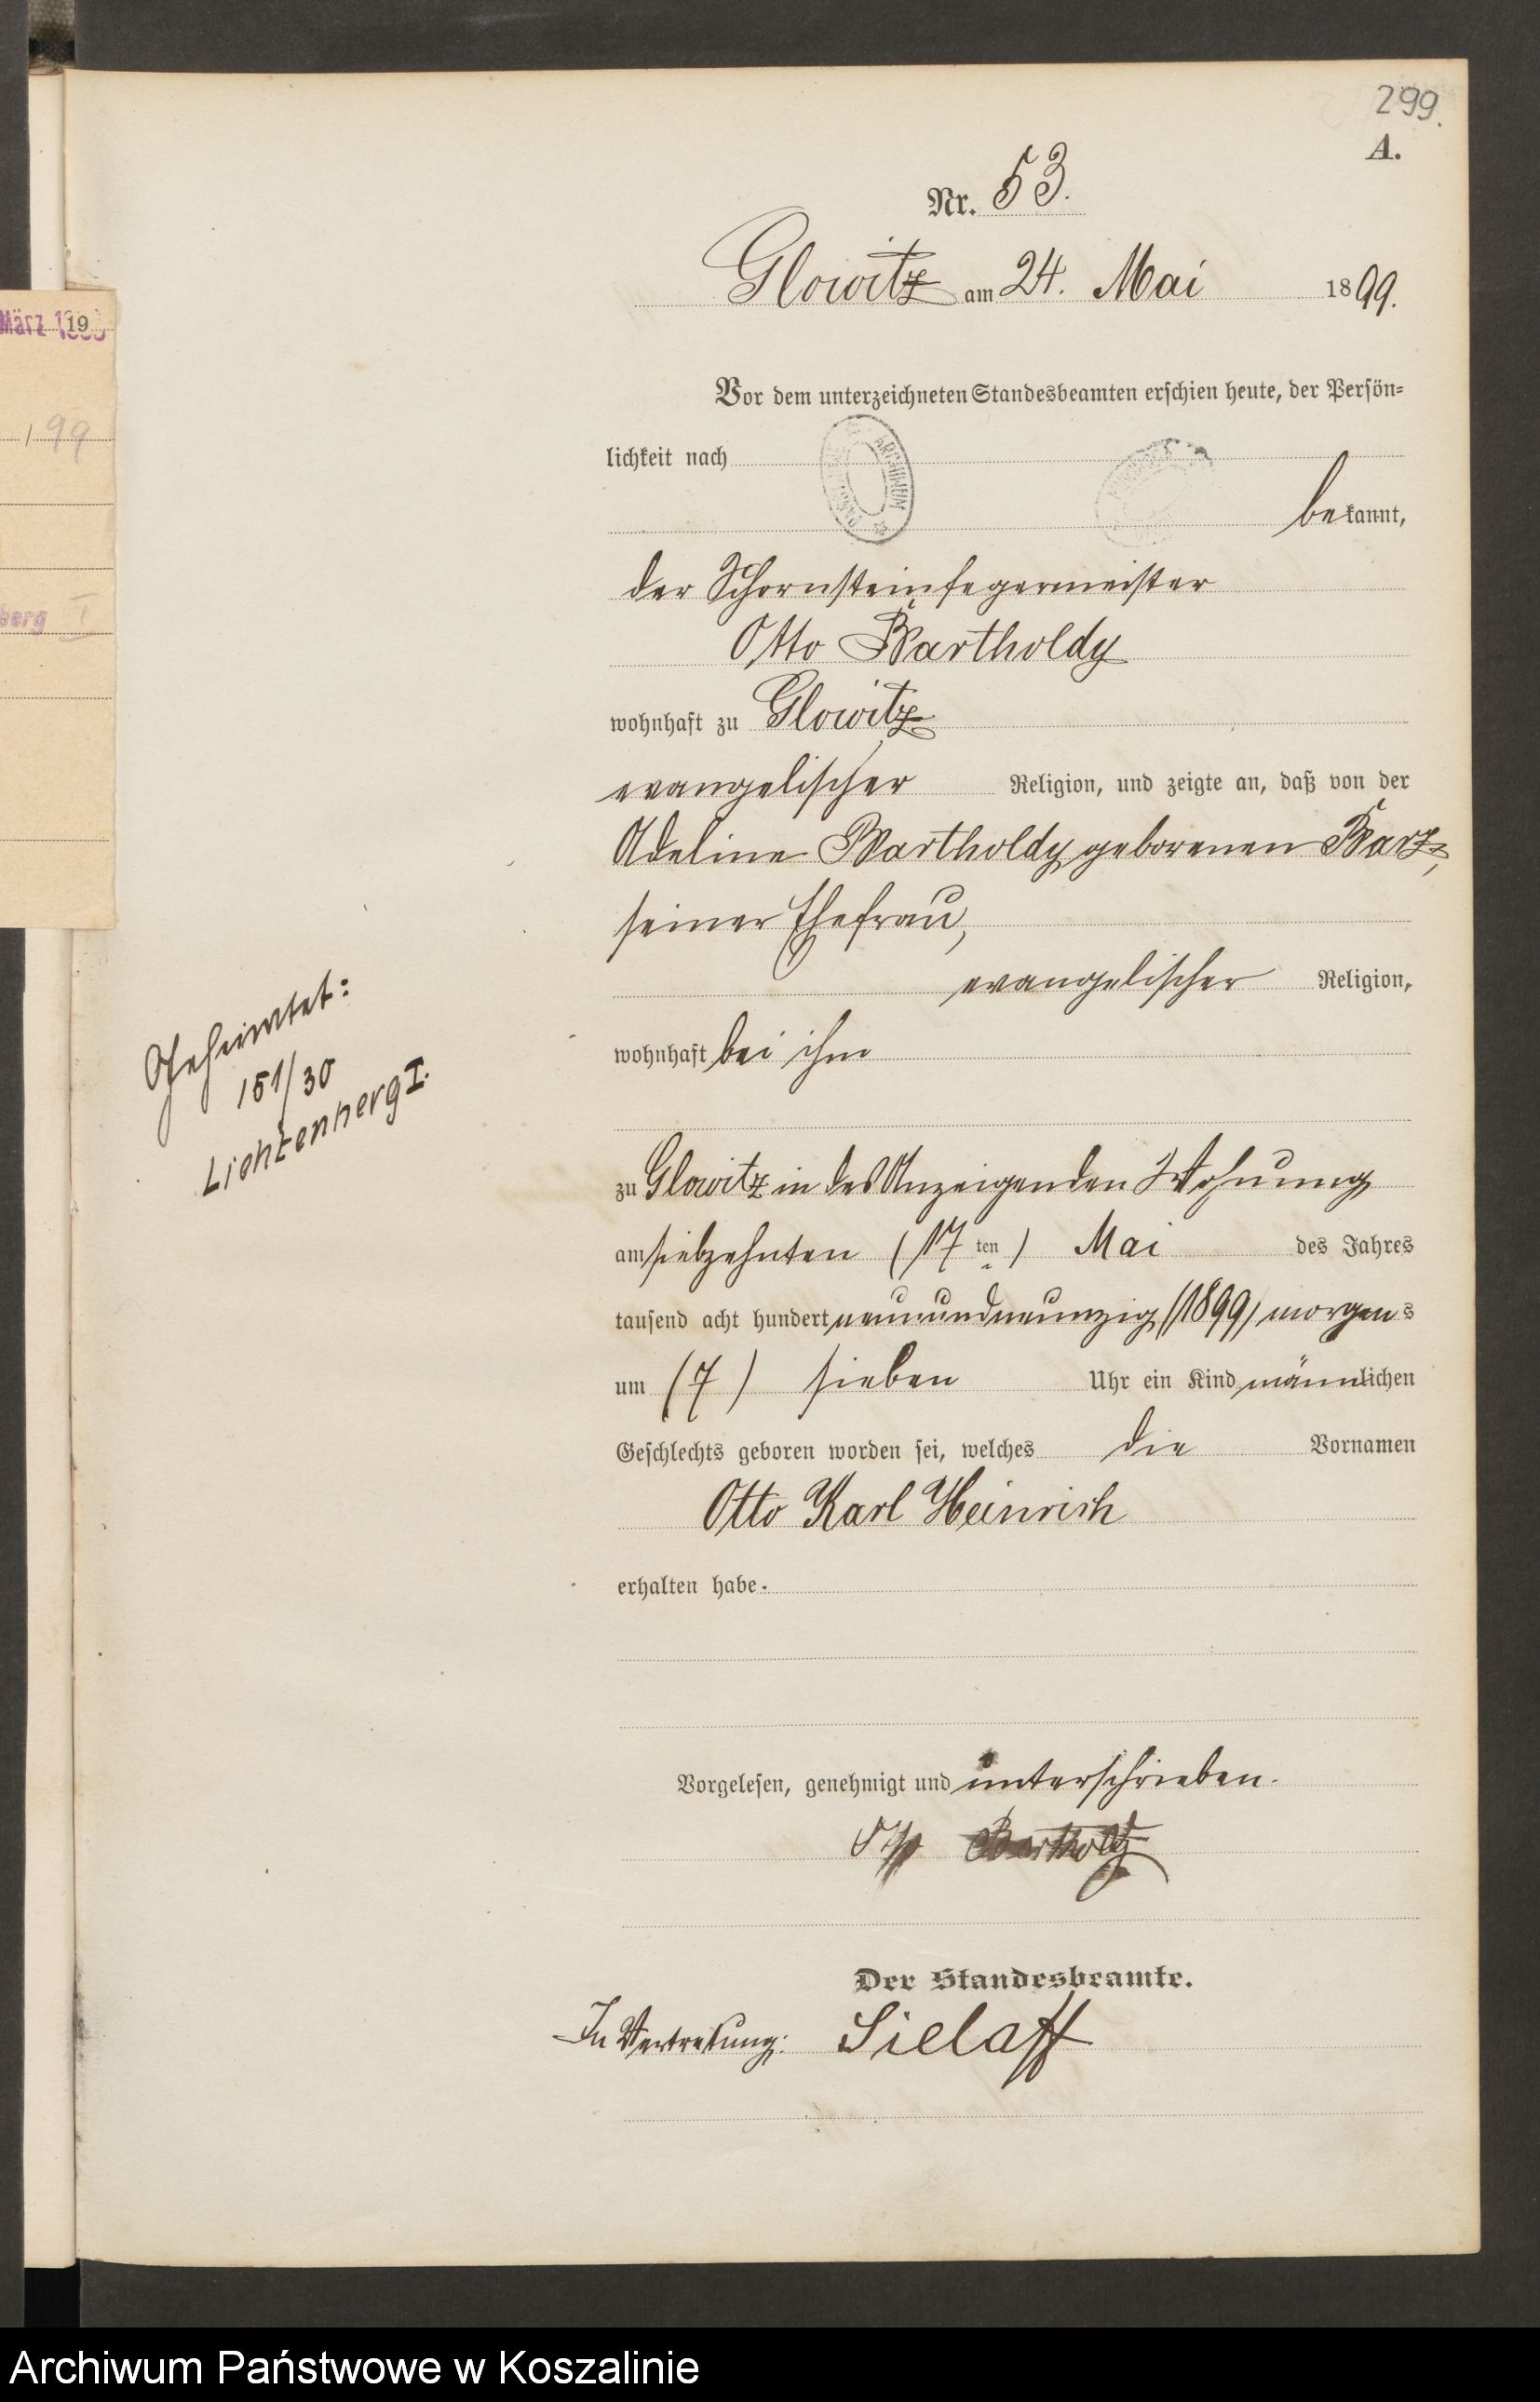 299.
A.
Nr. 53.
Glowitz am 24. Mai 1899.
Vor dem unterzeichneten Standesbeamten erschien heute, der Persön-
lichkeit nach
bekannt,
der Schornsteinfegermeister
Otto Bartholdy
wohnhaft zu Glowitz
evangelischer Religion, und zeigte an, daß von der
Adeline Bartholdy geborenen Barz,
seiner Ehefrau,
evangelischer Religion,
wohnhaft bei ihm
zu Glowitz in des Anzeigenden Wohnung
am siebzehnten (17ten) Mai des Jahres
tausend acht hundert neunundneunzig (1899) morgens
um (7) sieben Uhr ein Kind männlichen
Geschlechts geboren worden sei, welches die Vornamen
Otto Karl Heinrich
erhalten habe.
Vorgelesen, genehmigt und unterschrieben.
Otto Bartholdy
Der Standesbeamte.
In Vertretung: Sielaff
Geheiratet:
151/30
Lichtenberg I.
März 19
99
berg I
ARCHIWUM
Archiwum Państwowe w Koszalinie